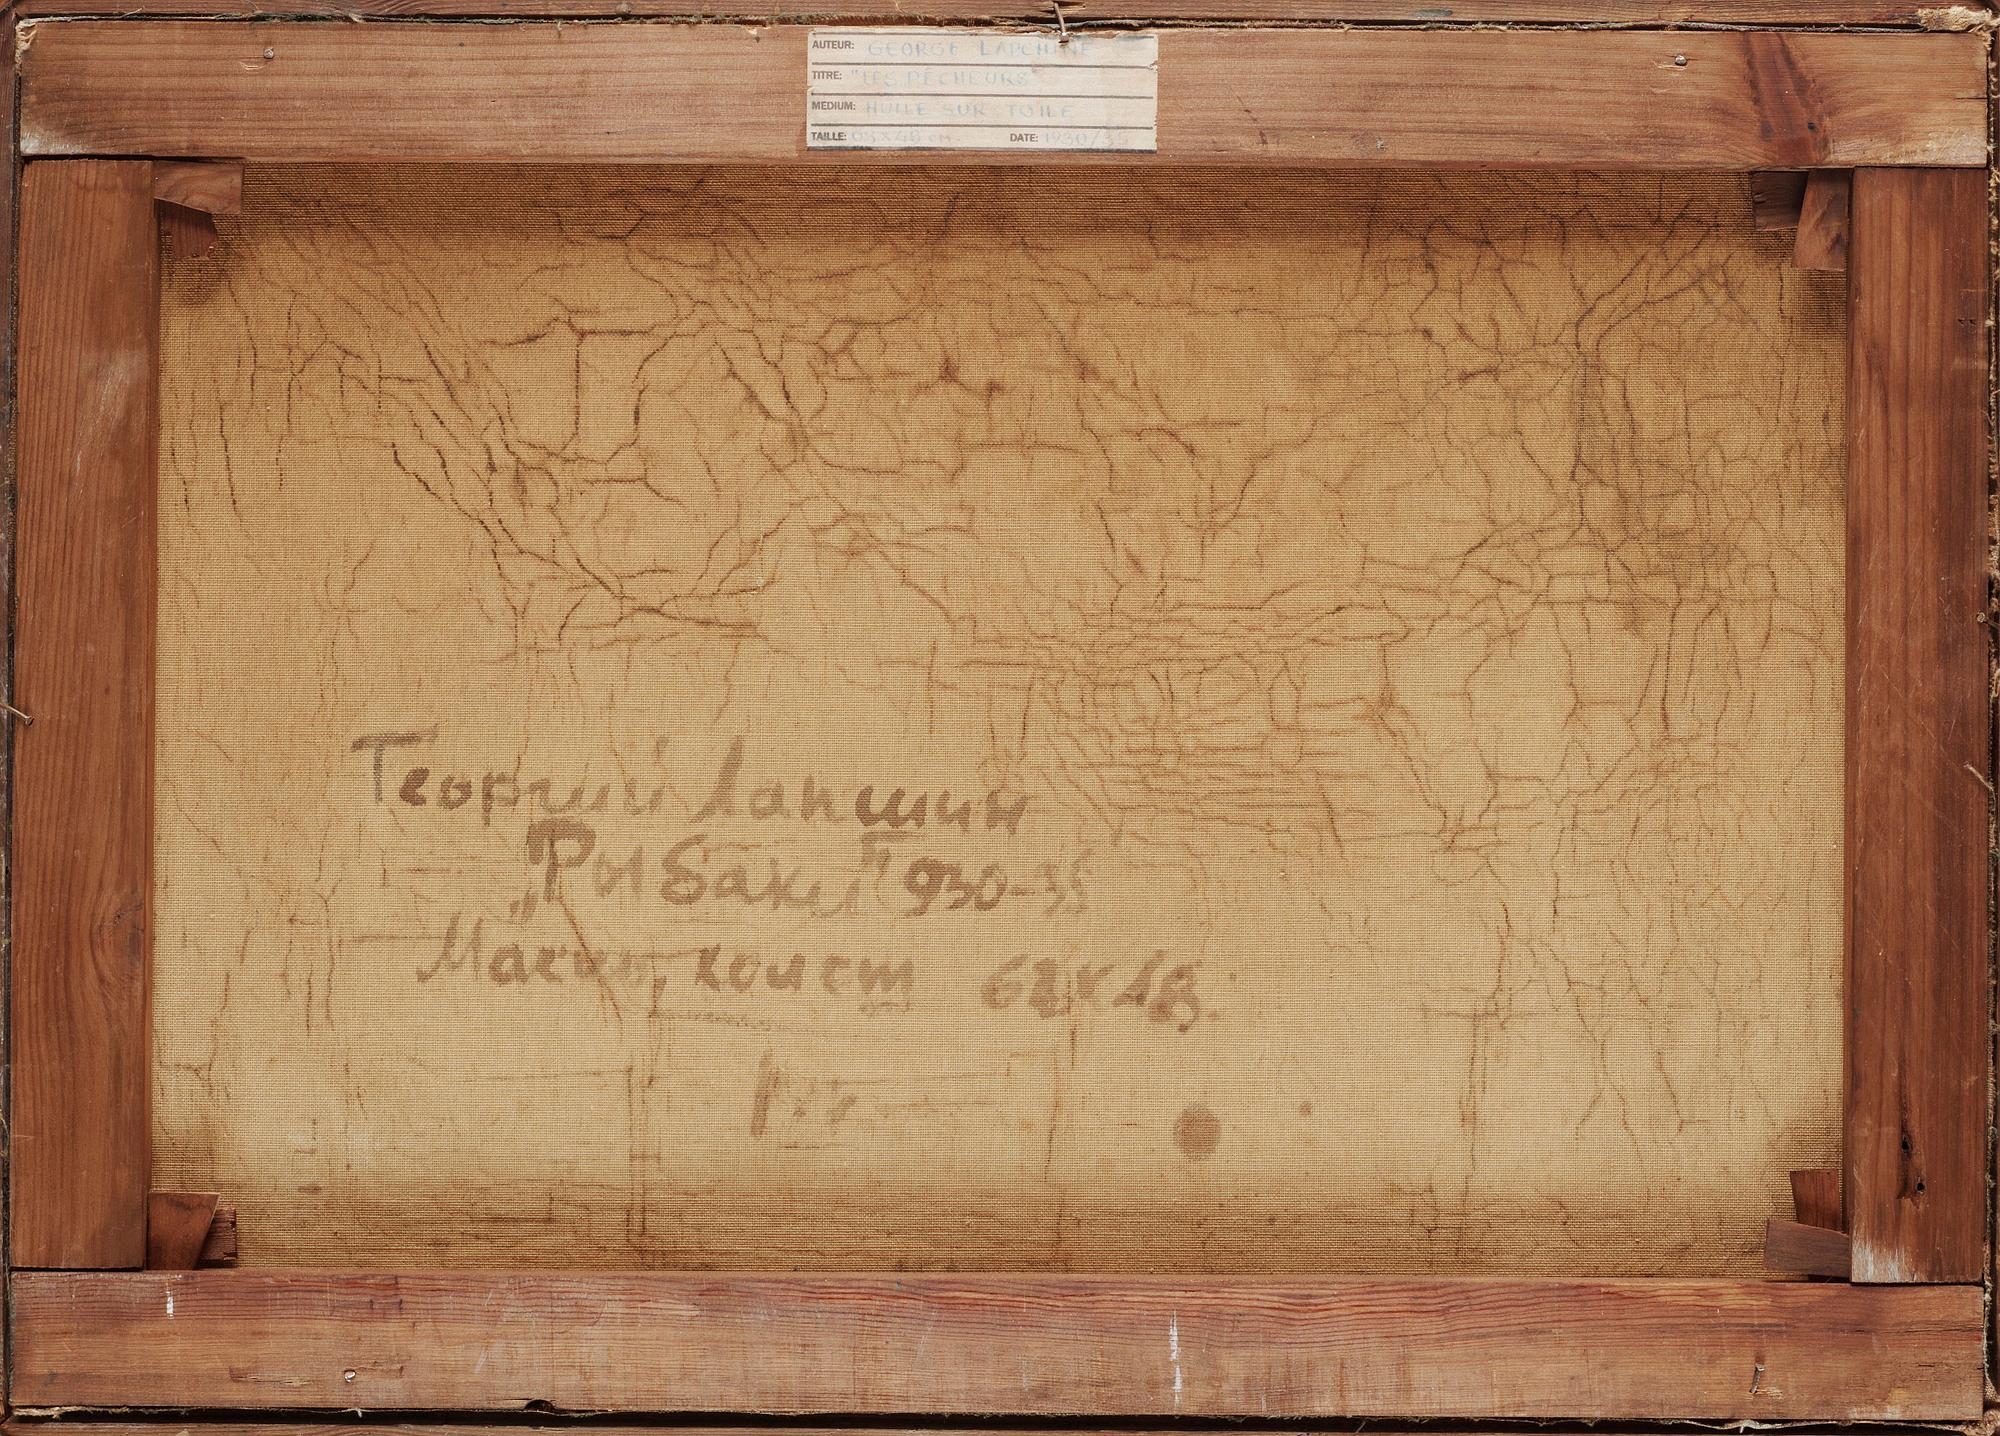 AUTEUR: GEORGE LAPCHINE
TITRE: "LES PÊCHEURS"
MEDIUM: HUILE SUR TOILE
TAILLE: 63X48 cm. DATE: 1930/35
Георгий Лапшин
„Рыбаки" 930-35
Масло, холст 62х48